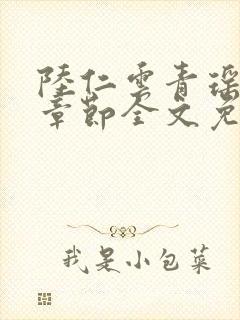 陆仁云青瑶
章节全文免
我是小包菜